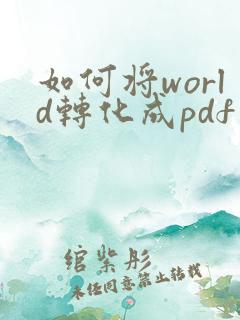 如何将worl
d轉化成pdf
绾紫彤
未经同意禁止转载